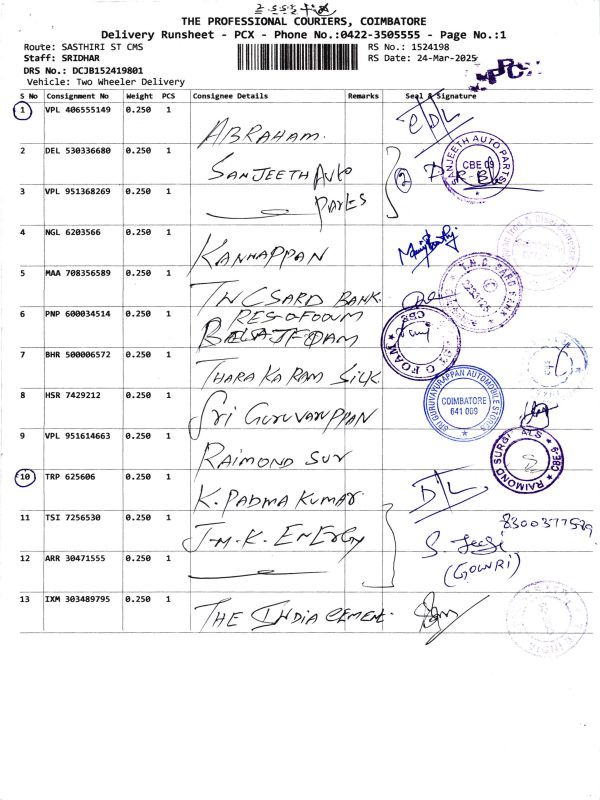 THE PROFESSIONAL COURIERS, COIMBATORE
Delivery Runsheet - PCX - Phone No.:0422-3505555 - Page No.:1
Route: SASTHIRI ST CMS
RS No.: 1524198
Staff: SRIDHAR
RS Date: 24-Mar-2025
DRS No.: DCJB152419801
Vehicle: Two Wheeler Delivery
S No Consignment No Weight PCS Consignee Details Remarks Seal & Signature
1 VPL 406555149 0.250 1 ABRAHAM.
2 DEL 530336680 0.250 1 SANJEETH AUTO
SANJEETH AUTO PARTS CBE 09
3 VPL 951368269 0.250 1 PARTS
4 NGL 6203566 0.250 1 KANNAPPAN
5 MAA 708356589 0.250 1 TNCSARD BANK
6 PNP 600034514 0.250 1
FOAM CBE
7 BHR 500006572 0.250 1 THARAKARAM SILK
8 HSR 7429212 0.250 1 SRI GURUVARUPPAN
SRI GURUVAYURAPPAN AUTOMOBILE STORES COIMBATORE 641 009
9 VPL 951614663 0.250 1 RAIMOND SUR
RAIMOND SURGICALS CBE-9
10 TRP 625606 0.250 1 K. PADMA KUMAR
11 TSI 7256530 0.250 1 J.M.K. ENERGY
8300377589
(GOWRI)
12 ARR 30471555 0.250 1
13 IXM 303489795 0.250 1 THE INDIA CEMENT.